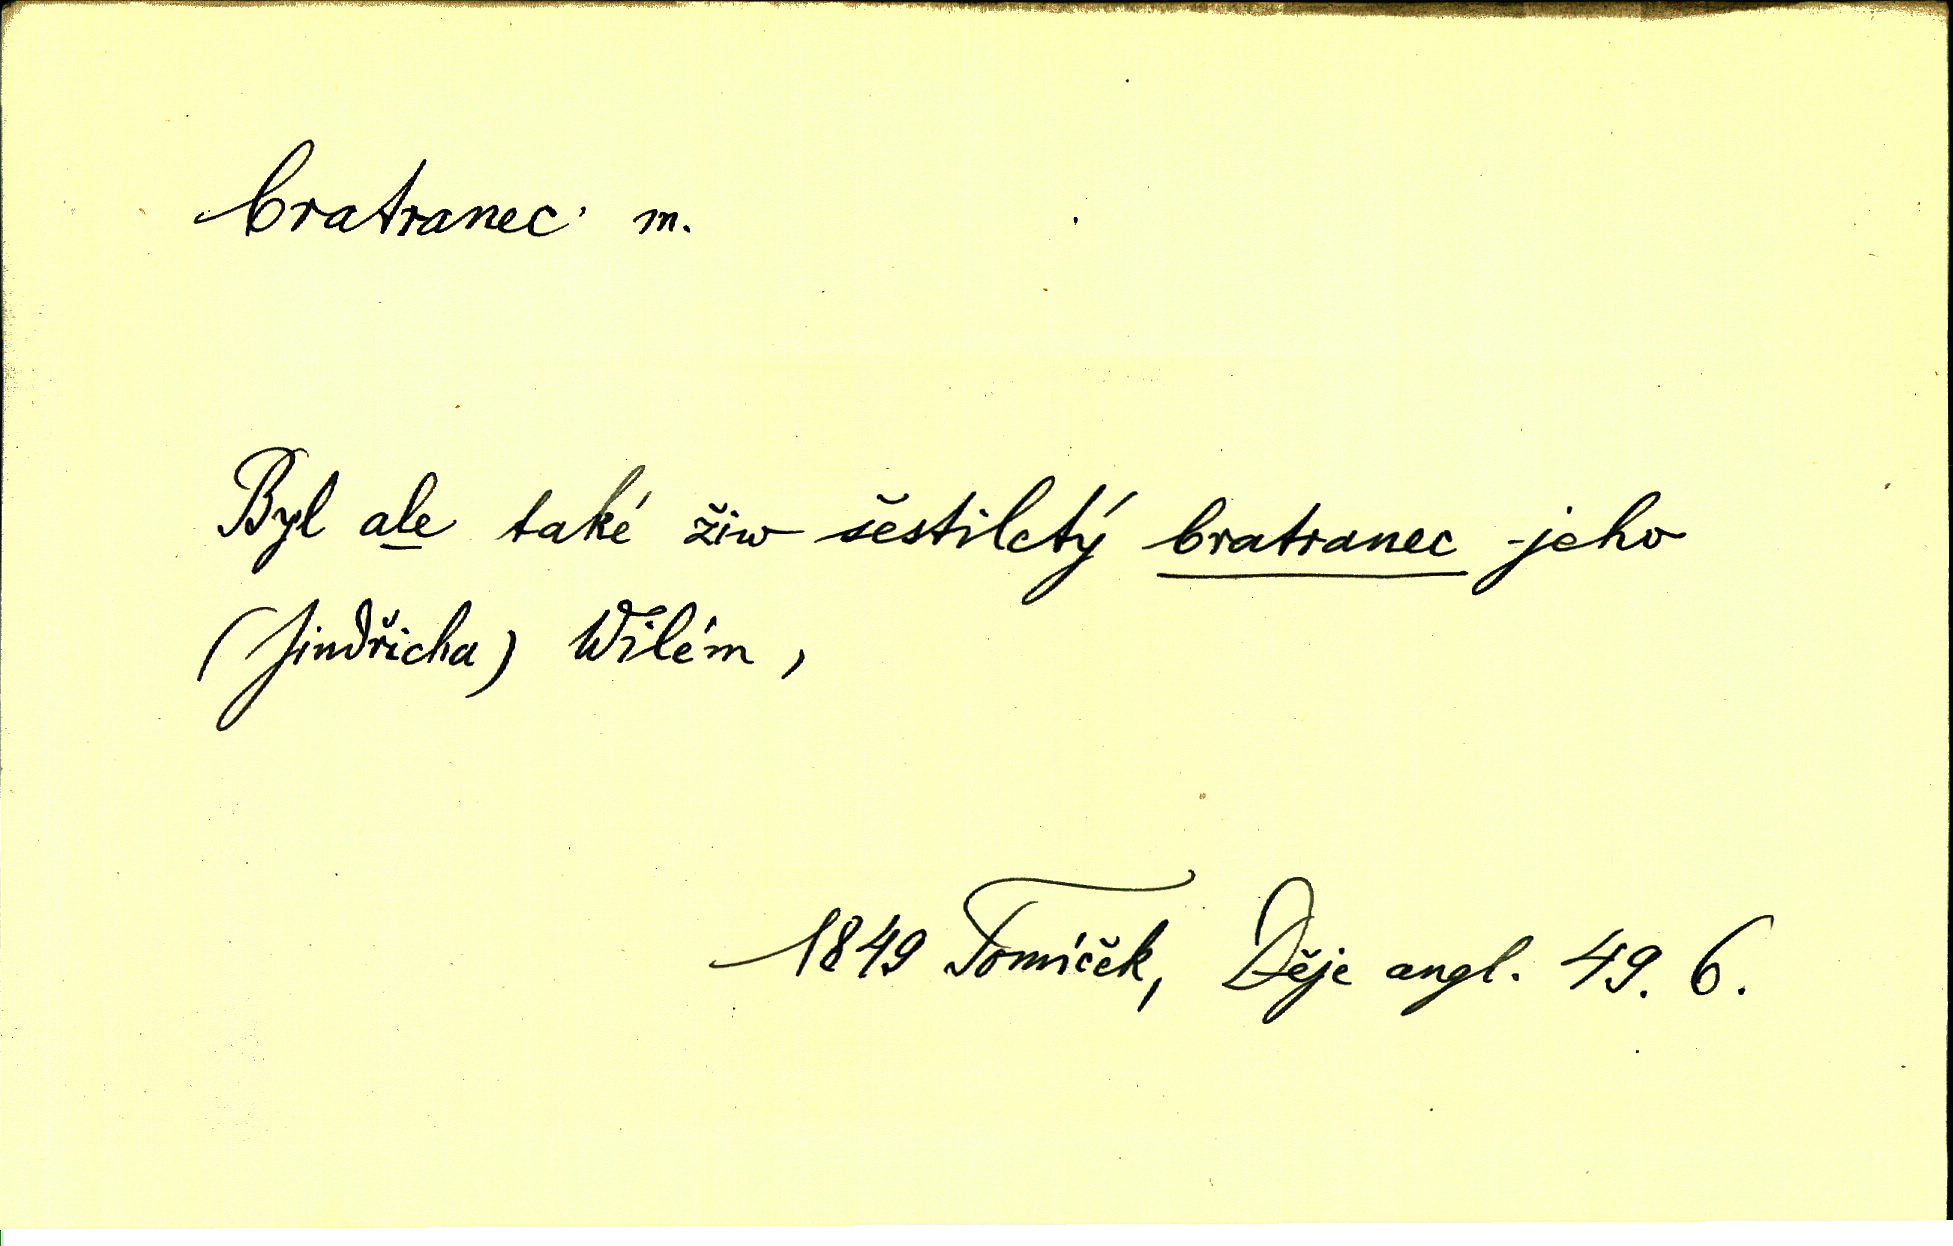 bratranec m.
Byl ale také žiw šestiletý bratranec jeho
(Jindřicha) Wilém,
1849 Tomíček, Děje angl. 49. 6.